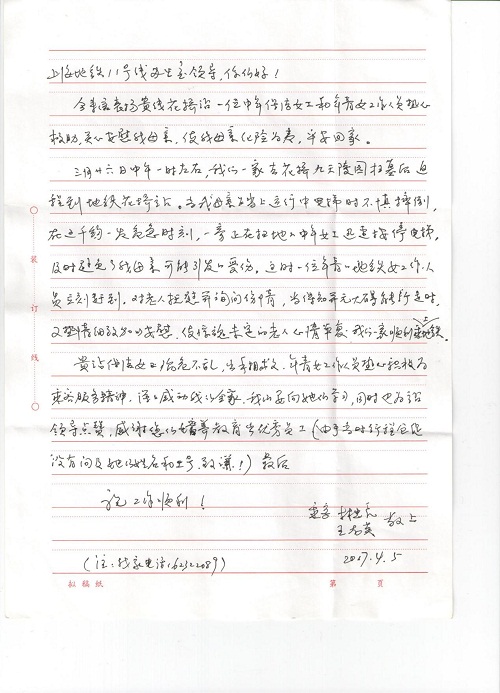 上海地铁11号线办公室领导,你们好!
今来信表扬贵线花桥站一位中年保洁女工和年青女工作人员热心
救助,关心安慰我母亲,使我母亲化险为夷,平安回家。
三月廿六日中午一时左右,我们一家去花桥九天陵园扫墓后返
程到地铁花桥站。当我母亲乘上运行中电梯时不慎摔倒,
在这千钧一发危急时刻,一旁正在扫地的中年女工迅速按停电梯,
及时避免了我母亲可能引发的受伤。这时一位年青的地铁女工作人
员立刻赶到,对老人搀扶并询问伤情,当得知并无大碍能行走时,
又热情细致的安慰,使惊魂未定的老人心情平复,我们一家顺利乘上地铁。
贵站保洁女工临危不乱,出手相救,年青女工作人员热心积极为
乘客服务精神,深深感动我们全家,我们要向她们学习,同时也为站
领导点赞,感谢您们培养教育出优秀员工(由于当时行程仓促
没有问及她们姓名和工号,致谦!)最后
祝工作顺利!
乘客
敬上
2017.4.5
(注:我家电话:62522089)
装
订
线
拟稿纸
第 页